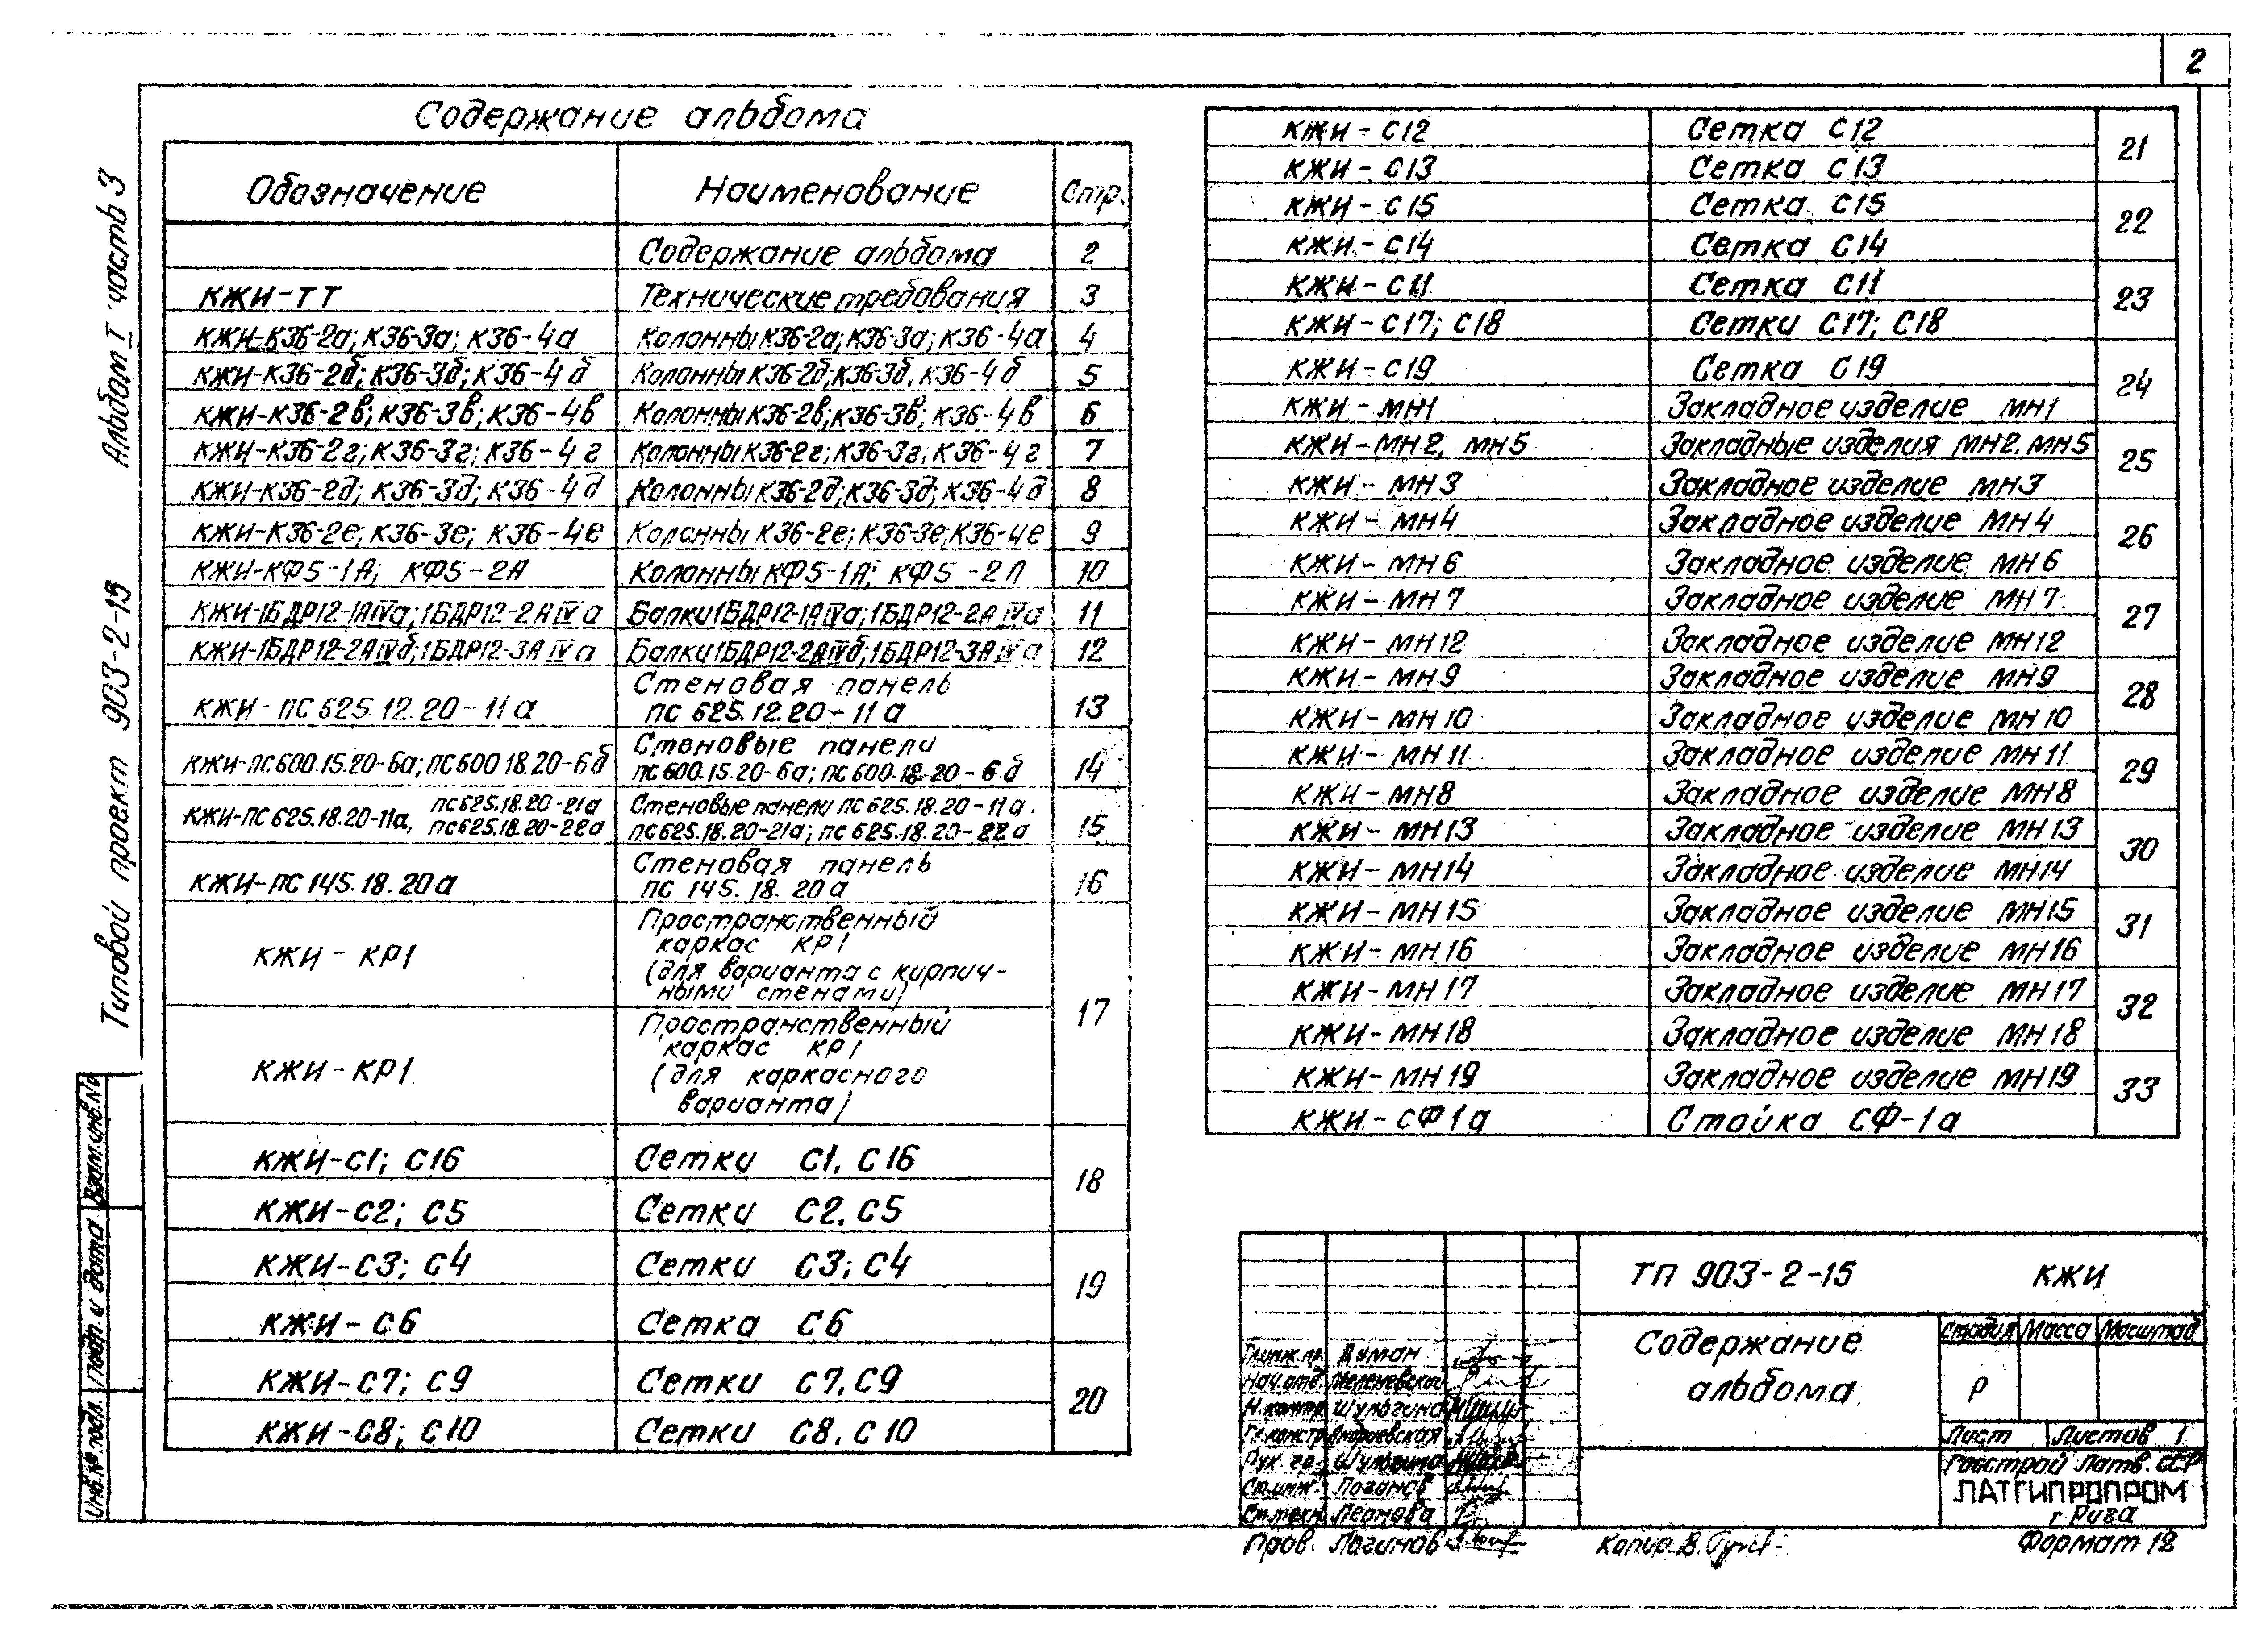 2
Типовой проект 903-2-15 Альбом I часть 3
Содержание альбома
Обозначение Наименование Стр.
Содержание альбома 2
КЖИ-ТТ Технические требования 3
КЖИ-К36-2а; К36-3а; К36-4а Колонны К36-2а; К36-3а; К36-4а 4
КЖИ-К36-2б; К36-3б; К36-4б Колонны К36-2б; К36-3б; К36-4б 5
КЖИ-К36-2в; К36-3в; К36-4в Колонны К36-2в; К36-3в; К36-4в 6
КЖИ-К36-2г; К36-3г; К36-4г Колонны К36-2г; К36-3г; К36-4г 7
КЖИ-К36-2д; К36-3д; К36-4д Колонны К36-2д; К36-3д; К36-4д 8
КЖИ-К36-2е; К36-3е; К36-4е Колонны К36-2е; К36-3е; К36-4е 9
КЖИ-КФ5-1А; КФ5-2А Колонны КФ5-1А; КФ5-2А 10
КЖИ-1БДР12-1АIVа; 1БДР12-2АIVа Балки 1БДР12-1АIVа; 1БДР12-2АIVа 11
КЖИ-1БДР12-2АIVб; 1БДР12-3АIVа Балки 1БДР12-2АIVб; 1БДР12-3АIVа 12
КЖИ-ПС 625.12.20-11а Стеновая панель
ПС 625.12.20-11а 13
КЖИ-ПС600.15.20-6а; ПС600 18.20-6б Стеновые панели
ПС600.15.20-6а; ПС600.18.20-6б 14
КЖИ-ПС625.18.20-11а, ПС625.18.20-21а Стеновые панели ПС625.18.20-11а.
ПС625.18.20-22а ПС625.18.20-21а; ПС625.18.20-22а 15
КЖИ-ПС145.18.20а Стеновая панель
ПС 145. 18. 20а 16
КЖИ-КР1 Пространственный
каркас КР1
(для варианта с кирпич-
ными стенами) 17
КЖИ-КР1 Пространственный
каркас КР1
(для каркасного
варианта)
КЖИ-С1; С16 Сетки С1, С16 18
КЖИ-С2; С5 Сетки С2, С5
КЖИ-С3; С4 Сетки С3; С4 19
КЖИ-С6 Сетка С6
КЖИ-С7; С9 Сетки С7, С9 20
КЖИ-С8; С10 Сетки С8, С10
КЖИ-С12 Сетка С12 21
КЖИ-С13 Сетка С13
КЖИ-С15 Сетка С15 22
КЖИ-С14 Сетка С14
КЖИ-С11 Сетка С11 23
КЖИ-С17; С18 Сетки С17; С18
КЖИ-С19 Сетка С19 24
КЖИ-МН1 Закладное изделие МН1
КЖИ-МН2, МН5 Закладные изделия МН2. МН5 25
КЖИ-МН3 Закладное изделие МН3
КЖИ-МН4 Закладное изделие МН4 26
КЖИ-МН6 Закладное изделие МН6
КЖИ-МН7 Закладное изделие МН7 27
КЖИ-МН12 Закладное изделие МН12
КЖИ-МН9 Закладное изделие МН9 28
КЖИ-МН10 Закладное изделие МН10
КЖИ-МН11 Закладное изделие МН11 29
КЖИ-МН8 Закладное изделие МН8
КЖИ-МН13 Закладное изделие МН13 30
КЖИ-МН14 Закладное изделие МН14
КЖИ-МН15 Закладное изделие МН15 31
КЖИ-МН16 Закладное изделие МН16
КЖИ-МН17 Закладное изделие МН17 32
КЖИ-МН18 Закладное изделие МН18
КЖИ-МН19 Закладное изделие МН19 33
КЖИ-СФ1а Стойка СФ-1а
ТП 903-2-15 КЖИ
Содержание
альбома
Стадия Масса Масштаб
Р
Лист Листов 1
Госстрой Латв. ССР
ЛАТГИПРОПРОМ
г. Рига
Гл.инж.пр. Думан
Нач.отд.
Н.контр. Шульгина
Гл.констр. Андриевская
Рук. гр. Шульгина
Ст.инж. Логинов
Ст.техн. Леонова
Пров. Логинов
Копир. В.
Формат 12
Взам.инв.№
Подп. и дата
Инв.№ подл.